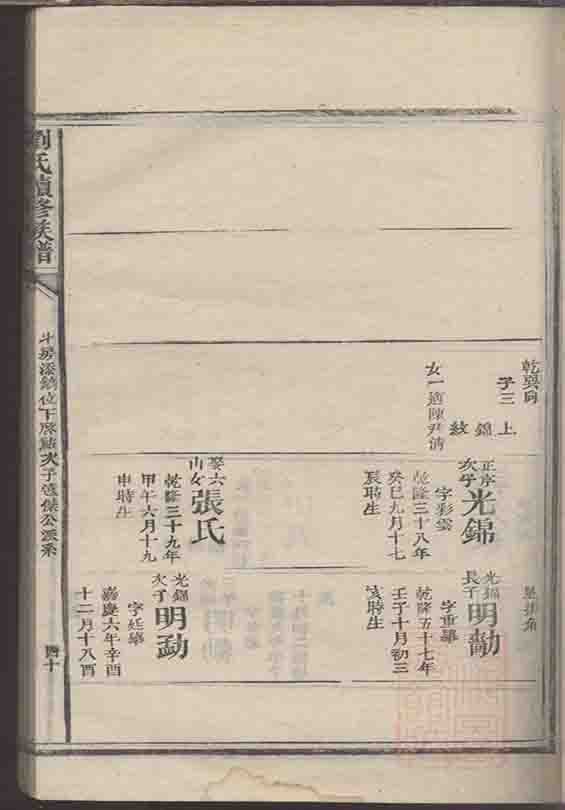 劉氏續修族譜
四十
乾巽向
子三
上 錦 紋
女一適陳尹清
正序
次子
光錦
字彩雲
乾隆三十八年
癸巳九月十七
辰時生
娶六
山女
張氏
乾隆三十九年
甲午六月十九
申時生
光錦
長子
字重華
乾隆五十七年
壬子十月初三
亥時生
光錦
次子
明勐
字廷舉
嘉慶六年辛酉
十二月十八酉